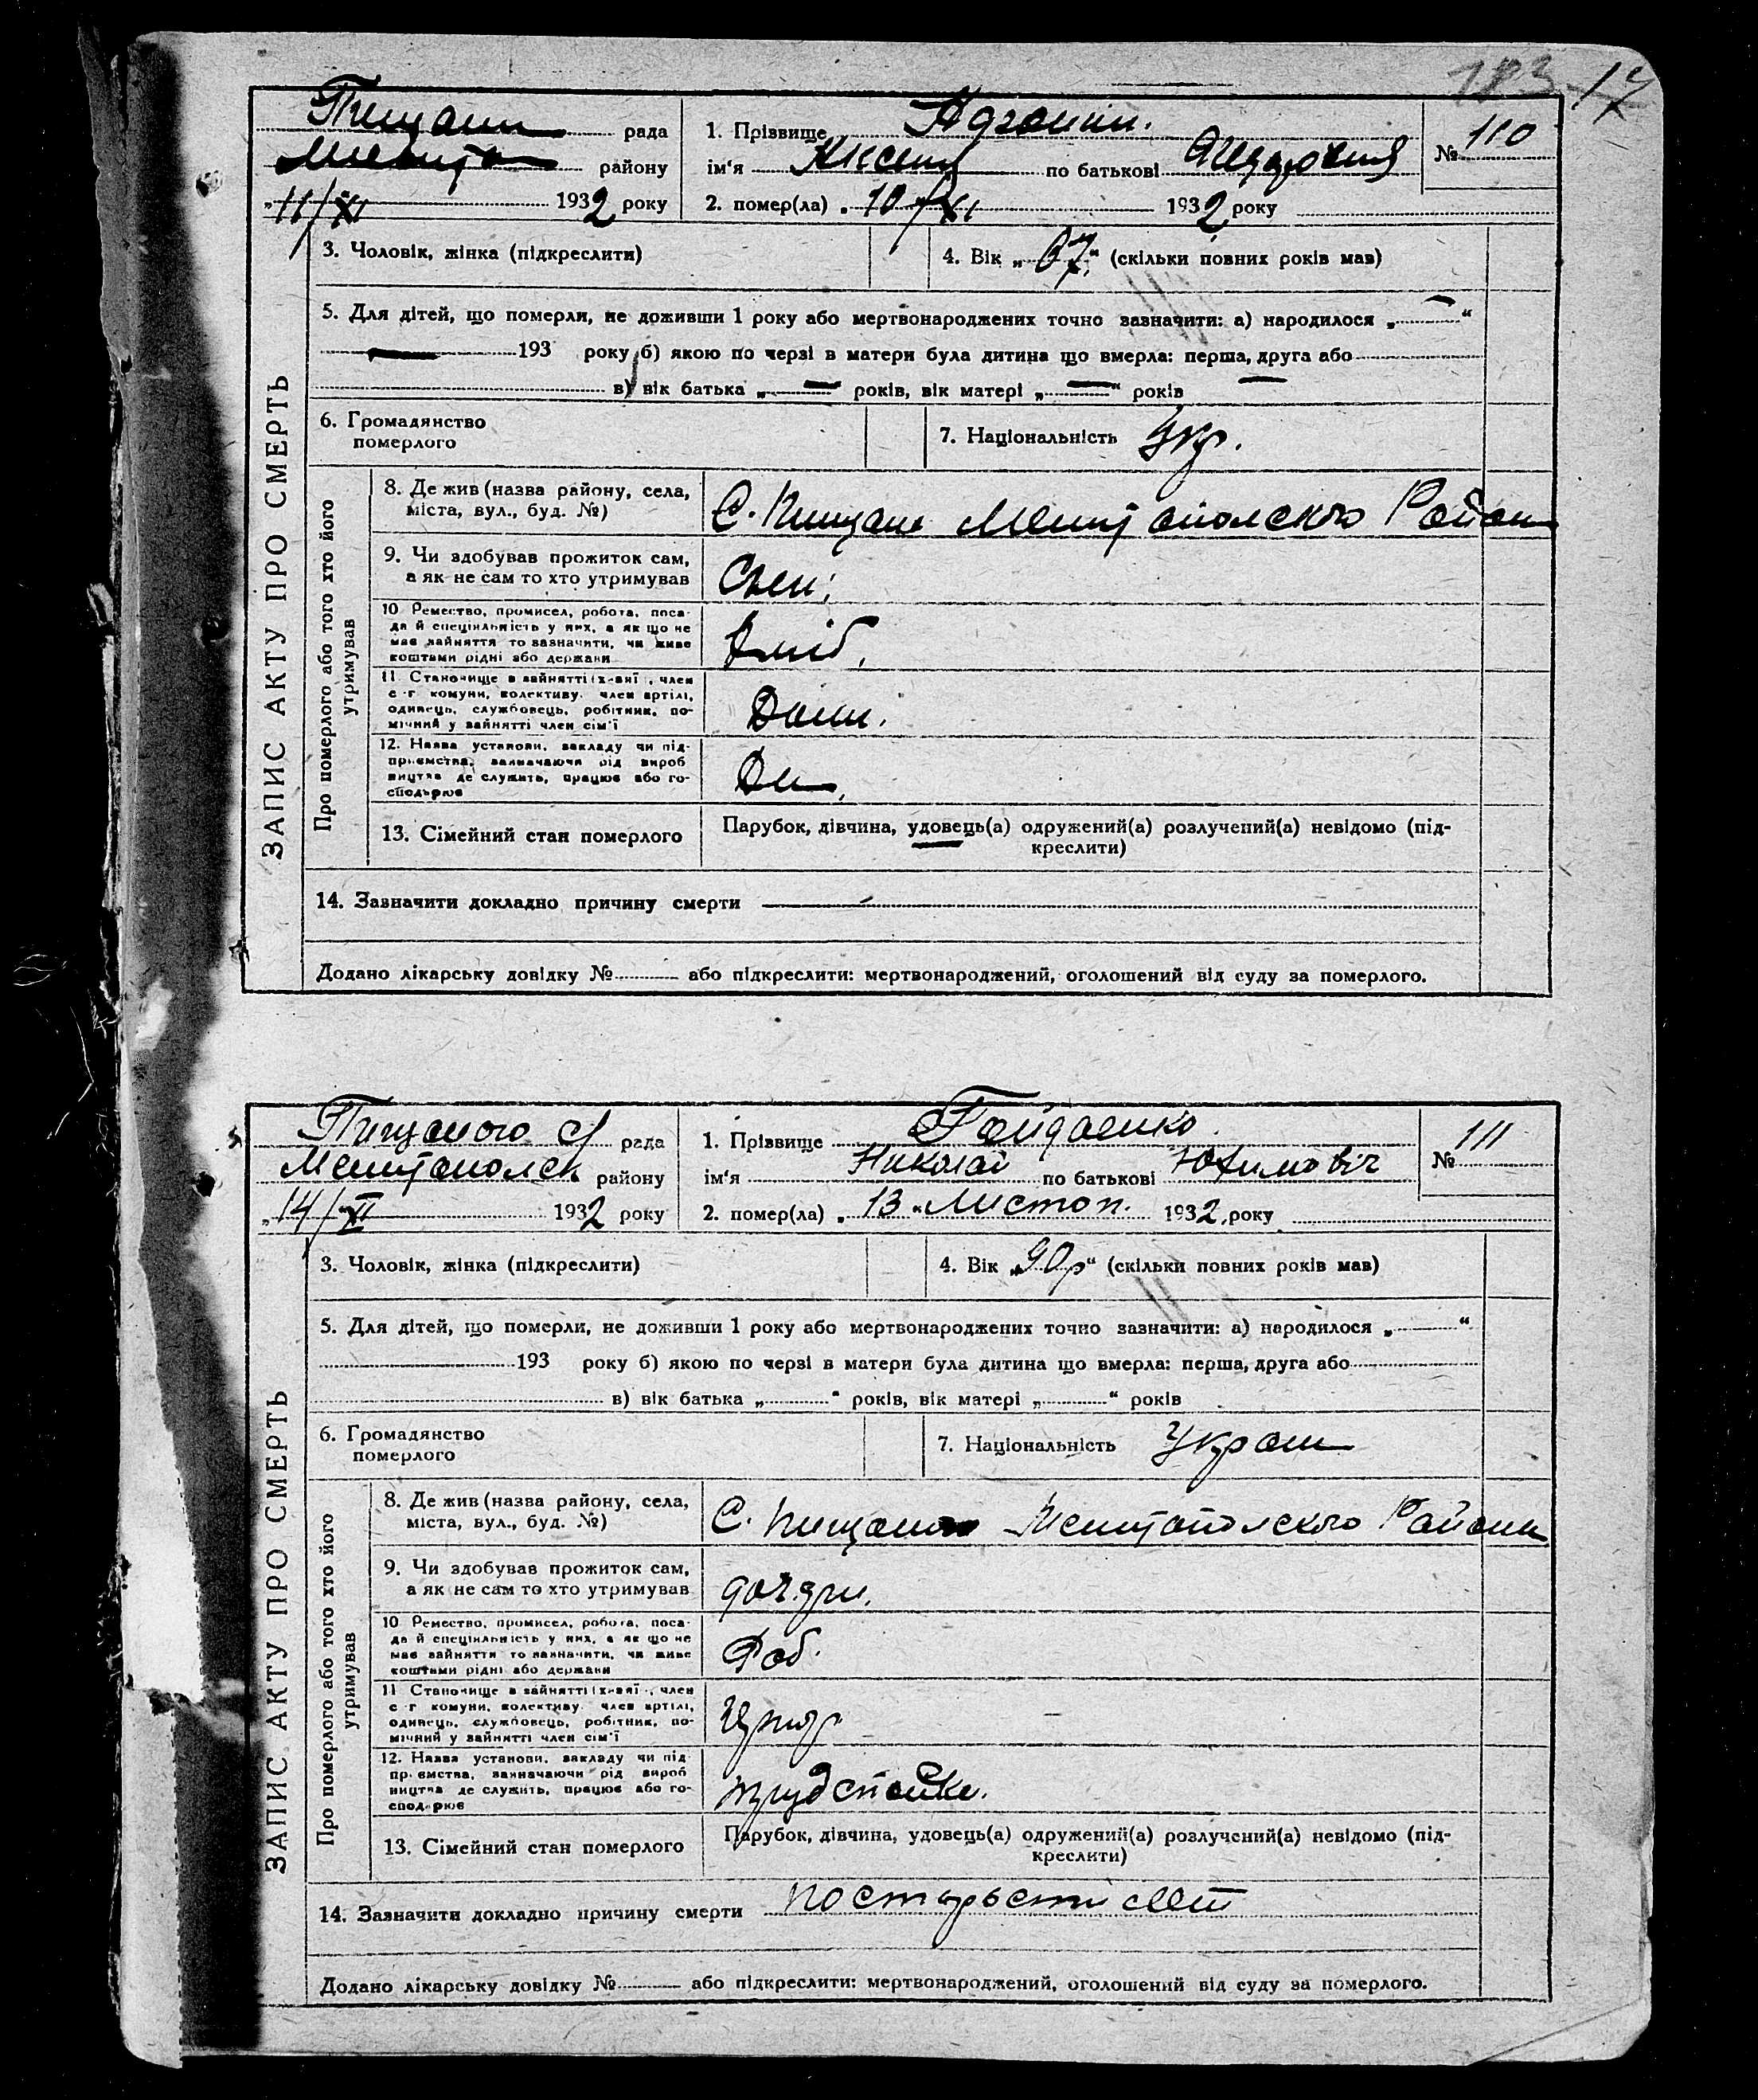 17
Пищани рада
району
11/XI 1932 року
1. Прізвище
ім'я по батькові
2. помер(ла) „ 10 /XI 1932 року
№ 110
ЗАПИС АКТУ ПРО СМЕРТЬ
3. Чоловік, жінка (підкреслити)
4. Вік „ 67 “ (скільки повних років мав)
5. Для дітей, що померли, не доживши 1 року або мертвонароджених точно зазначити: а) народилося „ — “
— 193 року б) якою по черзі в матери була дитина що вмерла: перша, друга або
в) вік батька „ — “ років, вік матері „ — “ років
6. Громадянство
померлого
7. Національність Укр.
Про померлого або того хто його
утримував
8. Де жив (назва району, села,
міста, вул., буд. №)
С. Пищане Мелитополского Район
9. Чи здобував прожиток сам,
а як не сам то хто утримував
10 Ремество, промисел, робота, поса-
да й спеціяльність у них, а як що не
має зайняття то зазначити, чи живе
коштами рідні або держави
11 Становище в зайнятті (х-зяї , член
с-г комуни, колективу, член артілі,
одинець, службовець, робітник, по-
мічний у зайнятті член сім'ї
12. Назва установи, закладу чи під-
приємства, зазначаючи рід вироб
ництва де служить, працює або го-
сподарює
13. Сімейний стан померлого
Парубок, дівчина, удовець(а) одружений(а) розлучений(а) невідомо (під-
креслити)
14. Зазначити докладно причину смерти —
Додано лікарську довідку № або підкреслити: мертвонароджений, оголошений від суду за померлого.
Пищаного рада
Мелитополск району
14/XI 1932 року
1. Прізвище Гайдаенко
ім'я Николай по батькові Юхимовіч
2. помер(ла) „ 13 “ Листоп. 1932 року
№ 111
ЗАПИС АКТУ ПРО СМЕРТЬ
3. Чоловік, жінка (підкреслити)
4. Вік „ 90р “ (скільки повних років мав)
5. Для дітей, що померли, не доживши 1 року або мертвонароджених точно зазначити: а) народилося „ “
193 року б) якою по черзі в матери була дитина що вмерла: перша, друга або
в) вік батька „ “ років, вік матері „ “ років
6. Громадянство
померлого
7. Національність Украин
Про померлого або того хто його
утримував
8. Де жив (назва району, села,
міста, вул., буд. №)
С. Пищаного Мелитополского Району
9. Чи здобував прожиток сам,
а як не сам то хто утримував
10 Ремество, промисел, робота, поса-
да й спеціяльність у них, а як що не
має зайняття то зазначити, чи живе
коштами рідні або держави
Роб.
11 Становище в зайнятті (х-зяї , член
с-г комуни, колективу, член артілі,
одинець, службовець, робітник, по-
мічний у зайнятті член сім'ї
12. Назва установи, закладу чи під
приємства, зазначаючи рід вироб
ництва де служить, працює або го-
сподарює
13. Сімейний стан померлого
Парубок, дівчина, удовець(а) одружений(а) розлучений(а) невідомо (під-
креслити)
14. Зазначити докладно причину смерти
Додано лікарську довідку № або підкреслити: мертвонароджений, оголошений від суду за померлого.